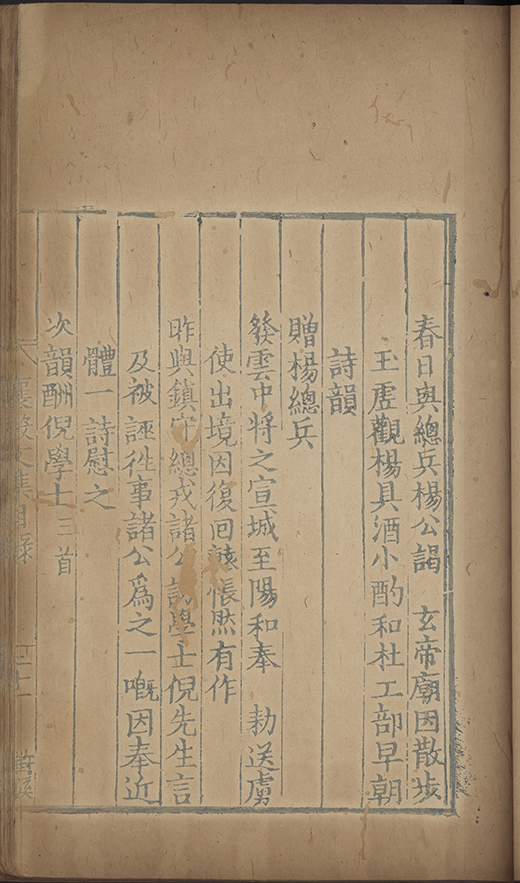 春日與總兵楊公謁 玄帝廟因散步
玉虛觀楊具酒小酌和杜工部早朝
詩韻
贈楊總兵
發雲中將之宣城至陽和奉 勑送虜
使出境因復回轅悵然有作
昨與鎮守總戎諸公訪學士倪先生言
及被誣徃事諸公爲之一嘅因奉近
體一詩慰之
次韻酬倪學士三首
襄毅文集目錄